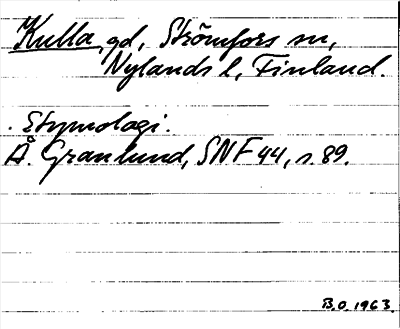 Kulla, gd, Strömfors sn,
Nylands l, Finland.
Etymologi.
Å. Granlund, SNF 44, s. 89.
B.O. 1963.